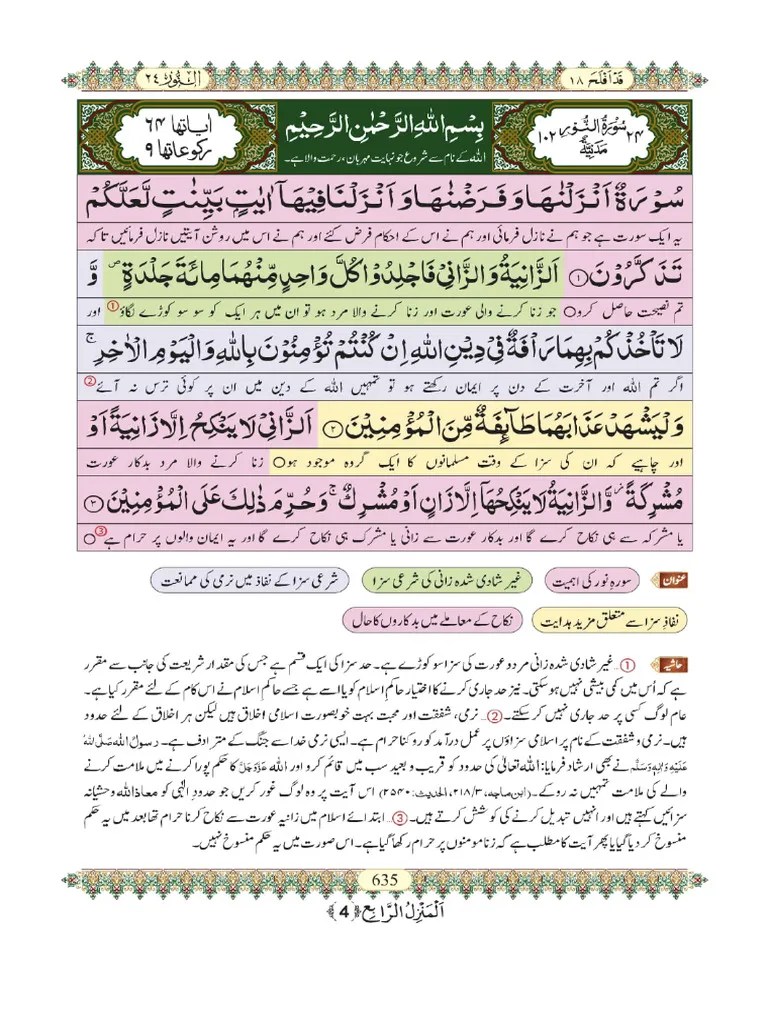 قَدْ اَفْلَحَ ۱۸
اَلنُّوْر ۲۴
سُوْرَةُ النُّوْرِ ۲۴
مَدَنِيَّةٌ ۱۰۲
بِسْمِ اللّٰهِ الرَّحْمٰنِ الرَّحِیْمِ
اللہ کے نام سے شروع جو نہایت مہربان، رحمت والا ہے۔
اٰیاتها ۶۴
رکوعاتها ۹
سُوْرَةٌ اَنْزَلْنٰهَا وَ فَرَضْنٰهَا وَ اَنْزَلْنَا فِیْهَاۤ اٰیٰتٍۭ بَیِّنٰتٍ لَّعَلَّكُمْ
یہ ایک سورت ہے جو ہم نے نازل فرمائی اور ہم نے اس کے احکام فرض کئے اور ہم نے اس میں روشن آیتیں نازل فرمائیں تاکہ
تَذَكَّرُوْنَ ۝۱ اَلزَّانِیَةُ وَ الزَّانِیْ فَاجْلِدُوْا كُلَّ وَاحِدٍ مِّنْهُمَا مِائَةَ جَلْدَةٍ۪ وَّ
تم نصیحت حاصل کرو○ جو زنا کرنے والی عورت اور زنا کرنے والا مرد ہو تو ان میں ہر ایک کو سو سو کوڑے لگاؤ ① اور
لَا تَاْخُذْكُمْ بِهِمَا رَاْفَةٌ فِیْ دِیْنِ اللّٰهِ اِنْ كُنْتُمْ تُؤْمِنُوْنَ بِاللّٰهِ وَ الْیَوْمِ الْاٰخِرِۚ
اگر تم اللہ اور آخرت کے دن پر ایمان رکھتے ہو تو تمہیں اللہ کے دین میں ان پر کوئی ترس نہ آئے ②
وَ لْیَشْهَدْ عَذَابَهُمَا طَآىٕفَةٌ مِّنَ الْمُؤْمِنِیْنَ ۝۲ اَلزَّانِیْ لَا یَنْكِحُ اِلَّا زَانِیَةً اَوْ
اور چاہیے کہ ان کی سزا کے وقت مسلمانوں کا ایک گروہ موجود ہو○ زنا کرنے والا مرد بدکار عورت
مُشْرِكَةً٘ وَّ الزَّانِیَةُ لَا یَنْكِحُهَاۤ اِلَّا زَانٍ اَوْ مُشْرِكٌۚ وَ حُرِّمَ ذٰلِكَ عَلَى الْمُؤْمِنِیْنَ ۝۳
یا مشرکہ سے ہی نکاح کرے گا اور بدکار عورت سے زانی یا مشرک ہی نکاح کرے گا اور یہ ایمان والوں پر حرام ہے ③○
عنوان سورہ نور کی اہمیت غیر شادی شدہ زانی کی شرعی سزا شرعی سزا کے نفاذ میں نرمی کی ممانعت
نفاذِ سزا سے متعلق مزید ہدایت نکاح کے معاملے میں بدکاروں کا حال
حاشیہ ①… غیر شادی شدہ زانی مرد و عورت کی سزا سو کوڑے ہے۔ حد سزا کی ایک قسم ہے جس کی مقدار شریعت کی جانب سے مقرر
ہے کہ اُس میں کمی بیشی نہیں ہو سکتی۔ نیز حد جاری کرنے کا اختیار حاکمِ اسلام کو یا اسے ہے جسے حاکم اسلام نے اس کام کے لئے مقرر کیا ہے۔
عام لوگ کسی پر حد جاری نہیں کر سکتے۔ ②… نرمی، شفقت اور محبت بہت خوبصورت اسلامی اخلاق ہیں لیکن ہر اخلاق کے لئے حدود
ہیں۔ نرمی و شفقت کے نام پر اسلامی سزاؤں پر عمل درآمد کو روکنا حرام ہے۔ ایسی نرمی خدا سے جنگ کے مترادف ہے۔ رسولُ اللہ صَلَّی اللہُ
عَلَیْہِ وَاٰلِہٖ وَسَلَّم نے بھی ارشاد فرمایا: اللہ تعالیٰ کی حدود کو قریب و بعید سب میں قائم کرو اور اللہ عَزَّوَجَلَّ کا حکم پورا کرنے میں ملامت کرنے
والے کی ملامت تمہیں نہ روکے۔ (ابن ماجہ، ۳/۲۱۸، الحدیث: ۲۵۴۰) اس آیت پر وہ لوگ غور کریں جو حدودِ الٰہی کو معاذاللہ وحشیانہ
سزائیں کہتے ہیں اور انہیں تبدیل کرنے کی کوشش کرتے ہیں۔ ③… ابتدائے اسلام میں زانیہ عورت سے نکاح کرنا حرام تھا بعد میں یہ حکم
منسوخ کر دیا گیا یا پھر آیت کا مطلب ہے کہ زنا مومنوں پر حرام رکھا گیا ہے۔ اس صورت میں یہ حکم منسوخ نہیں۔
635
اَلْمَنْزِلُ الرَّابِع ﴿4﴾